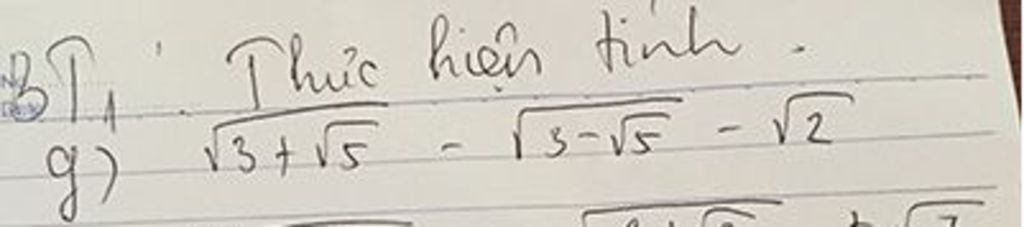 BT1 Thực hiện tính.
g) √(3+√5) - √(3-√5) - √2